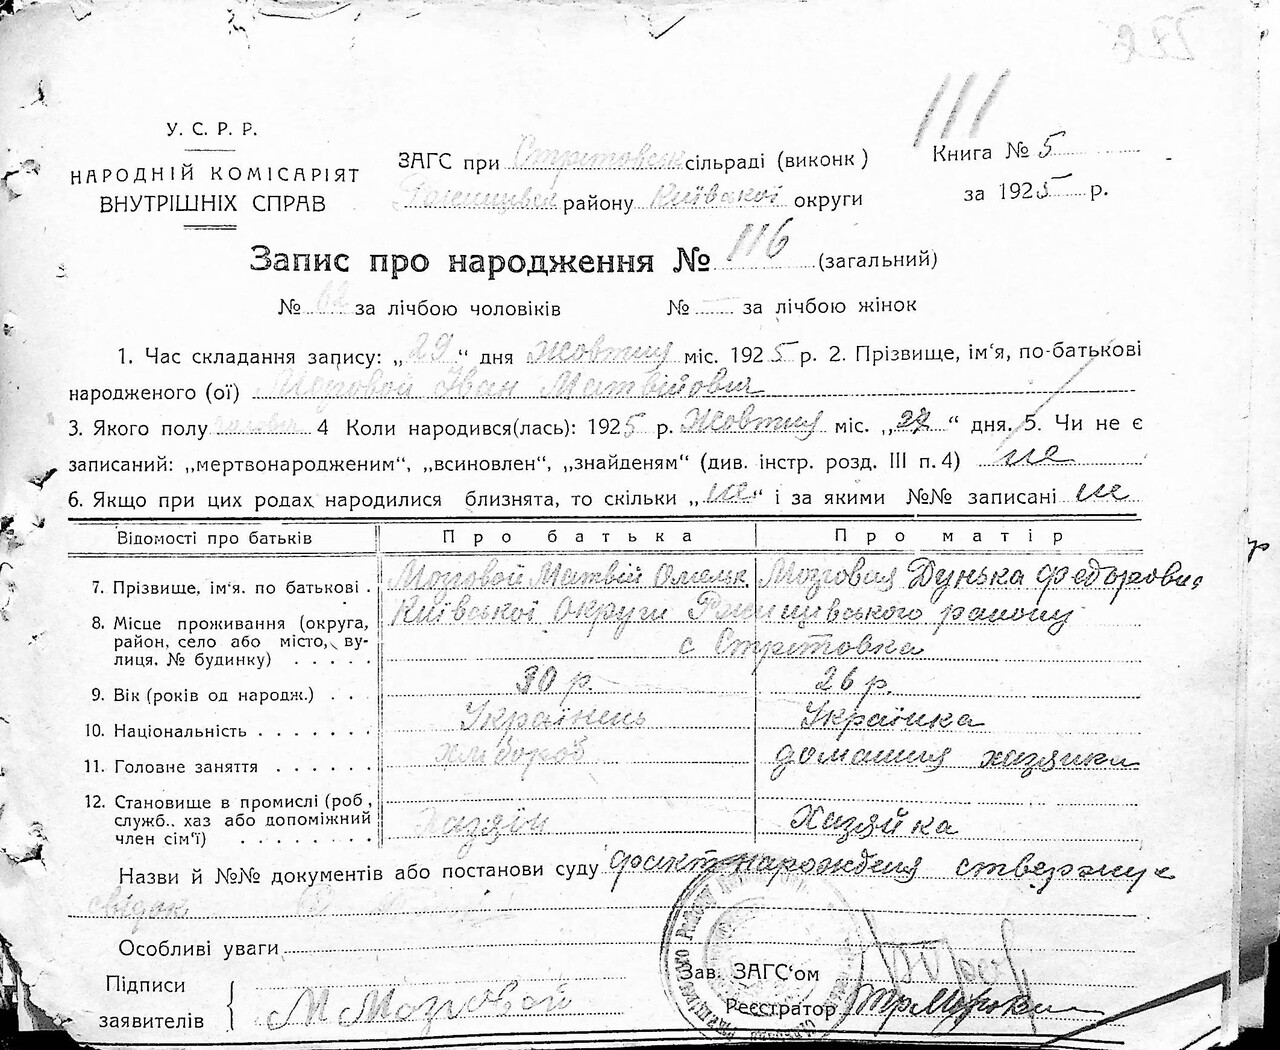 111
У. С. Р. Р.
НАРОДНІЙ КОМІСАРІЯТ
ВНУТРІШНІХ СПРАВ
ЗАГС при Стретовськ сільраді (виконк )
району Київської округи
Книга № 5
за 1925 р.
Запис про народження № 116 (загальний)
№ 62 за лічбою чоловіків № — за лічбою жінок
1. Час складання запису: „29“ дня Жовтня міс. 1925 р. 2. Прізвище, ім‘я, по-батькові
народженого (ої) Мозговой Іван Матвійович
3. Якого полу 4 Коли народився(лась): 1925 р. Жовтня міс. „27“ дня. 5. Чи не є
записаний: „мертвонародженим“, „всиновлен“, „знайденям“ (див. інстр. розд. III п. 4) не
6. Якщо при цих родах народилися близнята, то скільки „не“ і за якими №№ записані не
Відомості про батьків Про батька Про матір
7. Прізвище, ім‘я. по батькові . Мозговой Матвій Омельк Мозговая Дунька Федоровна
8. Місце проживання (округа, Київської Округи Ржищівського району
район, село або місто, ву-
лиця, № будинку) . . . . . с Стретовка
9. Вік (років од народж.) . . . 30 р. 26 р.
10. Національність . . . . . . . Українець Українка
11. Головне заняття . . . . . . хлібороб домашня хазяйка
12. Становище в промислі (роб.,
служб.. хаз або допоміжний Хазяїн Хазяйка
член сім‘ї) . . . . . . . .
Назви й №№ документів або постанови суду факт народженя ствержує
свідок
Особливі уваги
Підписи
заявителів М Мозговой
Зав. ЗАГС‘ом
Реєстратор